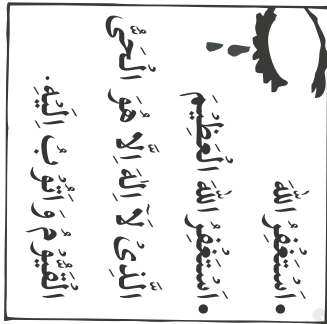 • اَسْتَغْفِرُ اللّٰهَ
• اَسْتَغْفِرُ اللّٰهَ الْعَظِيْمَ
الَّذِىْ لَآ اِلٰهَ اِلَّا هُوَ الْحَىُّ
الْقَيُّوْمُ وَاَتُوْبُ اِلَيْهِ.